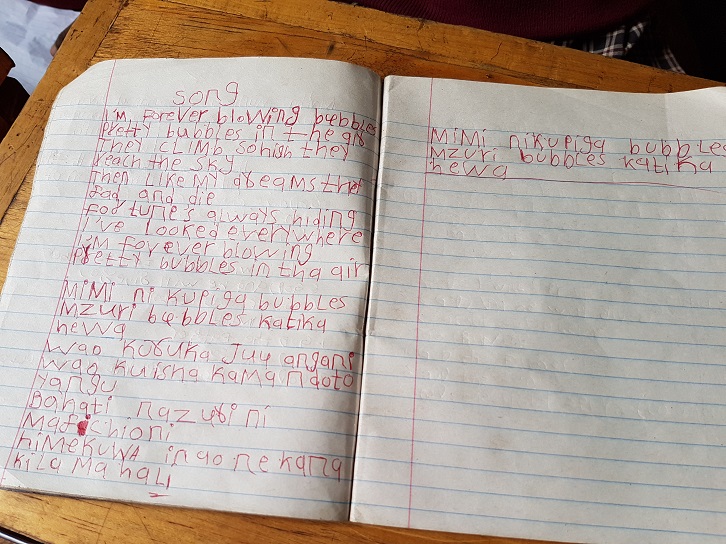 song
I'm Forever blowing bubbles
Pretty bubbles in the air
They CLimb sohigh they
reach the sky
Then Like My dreams that
fad and die
for tune's always hiding
I've looked everywhere
I'm forever blowing
Pretty bubbles in tha air
MiMi ni kupiga bubbLes
Mzuri bubbles katika
hewa
wao koruka Juu angani
wao kuisha kama ndoto
yangu
Bahati nazubi ni
Maf chioni
niMekuwa ingo ne kana
kila Mahali
MiMi nikupiga bubbles
Mzuri bubbles katika
hewa